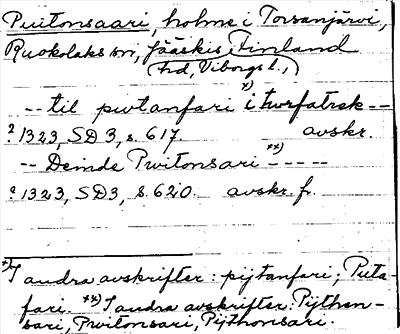 Puitonsaari, holme i Torsanjärvi,
Ruokolaks sn, Jääskis, Finland
(hd, Viborgs l.,)
-- til pwtanfari x) i twrfatrsk --
? 1323, SD 3, s. 617 avskr.
-- Deinde Pwitonsari xx) -----
? 1323, SD3, s. 620. avskr. f.
x) I andra avskrifter: pijtanfari; Puta-
fari. xx) I andra avskrifter: Pijthon-
sari, Pwilonsari, Pijthonsari.